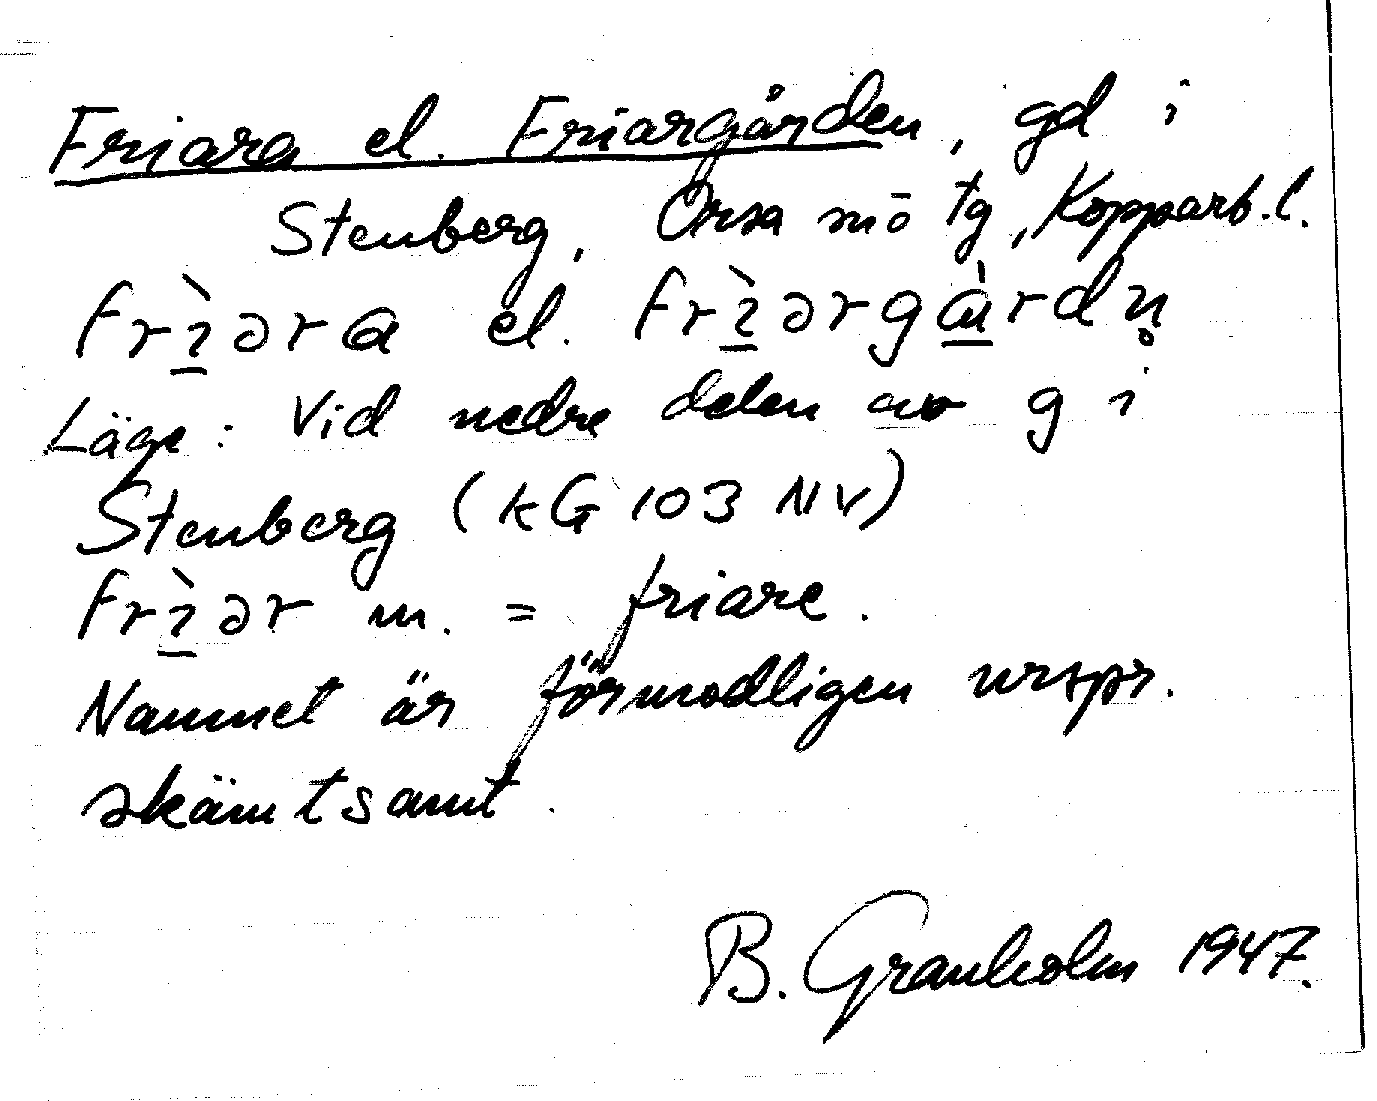 Friara el. Friargården, gd i
Stenberg, Orsa sn ö tg, Kopparb.l.
frı̱̀əra el. frı̱̀ərgå̱̀rdn̥
Läge: Vid nedre delen av g i
Stenberg (kG 103 NV)
frı̱̀ər m. = friare.
Namnet är förmodligen urspr.
skämtsamt.
B. Granholm 1947.